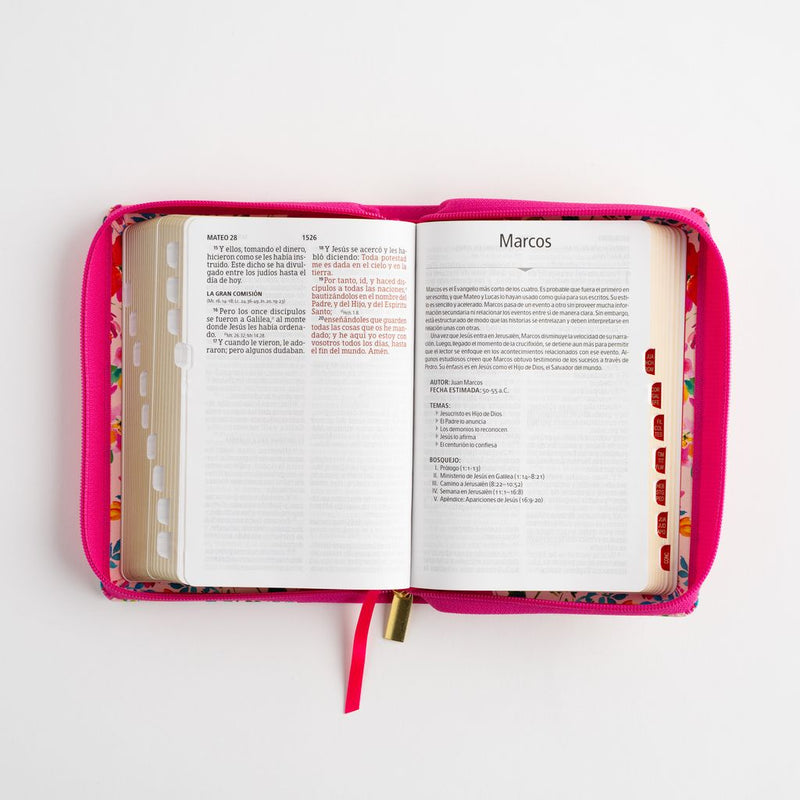 MATEO 28
1526
15 Y ellos, tomando el dinero,
hicieron como se les había ins-
truido. Este dicho se ha divul-
gado entre los judíos hasta el
día de hoy.
LA GRAN COMISIÓN
16 Pero los once discípulos
se fueron a Galilea, al monte
donde Jesús les había ordena-
do.
17 Y cuando le vieron, le ado-
raron; pero algunos dudaban.
18 Y Jesús se acercó y les ha-
bló diciendo: Toda potestad
me es dada en el cielo y en la
tierra.
19 Por tanto, id, y haced dis-
cípulos a todas las naciones,
bautizándolos en el nombre del
Padre, y del Hijo, y del Espíritu
Santo;
20 enseñándoles que guarden
todas las cosas que os he man-
dado; y he aquí yo estoy con
vosotros todos los días, hasta
el fin del mundo. Amén.
Marcos
Marcos es el Evangelio más corto de los cuatro. Es probable que fuera el primero en
ser escrito, y que Mateo y Lucas lo hayan usado como guía para sus escritos. Su esti-
lo es sencillo y acelerado. Marcos pasa de un evento a otro sin proveer mucha infor-
mación secundaria ni relacionar los eventos entre sí de manera clara. Sin embargo,
está estructurado de modo que las historias se entrelazan y deben interpretarse en
relación unas con otras.
Una vez que Jesús entra en Jerusalén, Marcos disminuye la velocidad de su narra-
ción. Luego, llegado el momento de la crucifixión, se detiene aun más para permitir
que el lector se enfoque en los acontecimientos relacionados con ese evento. Al-
gunos estudiosos creen que Marcos obtuvo testimonio de los sucesos a través de
Pedro. Su énfasis es en Jesús como el Hijo de Dios, el Salvador del mundo.
AUTOR: Juan Marcos
FECHA ESTIMADA: 50-55 a.C.
TEMAS:
Jesucristo es Hijo de Dios
El Padre lo anuncia
Los demonios lo reconocen
Jesús lo afirma
El centurión lo confiesa
BOSQUEJO:
I. Prólogo (1:1-13)
II. Ministerio de Jesús en Galilea (1:14-8:21)
III. Camino a Jerusalén (8:22-10:52)
IV. Semana en Jerusalén (11:1-16:8)
V. Apéndice: Apariciones de Jesús (16:9-20)